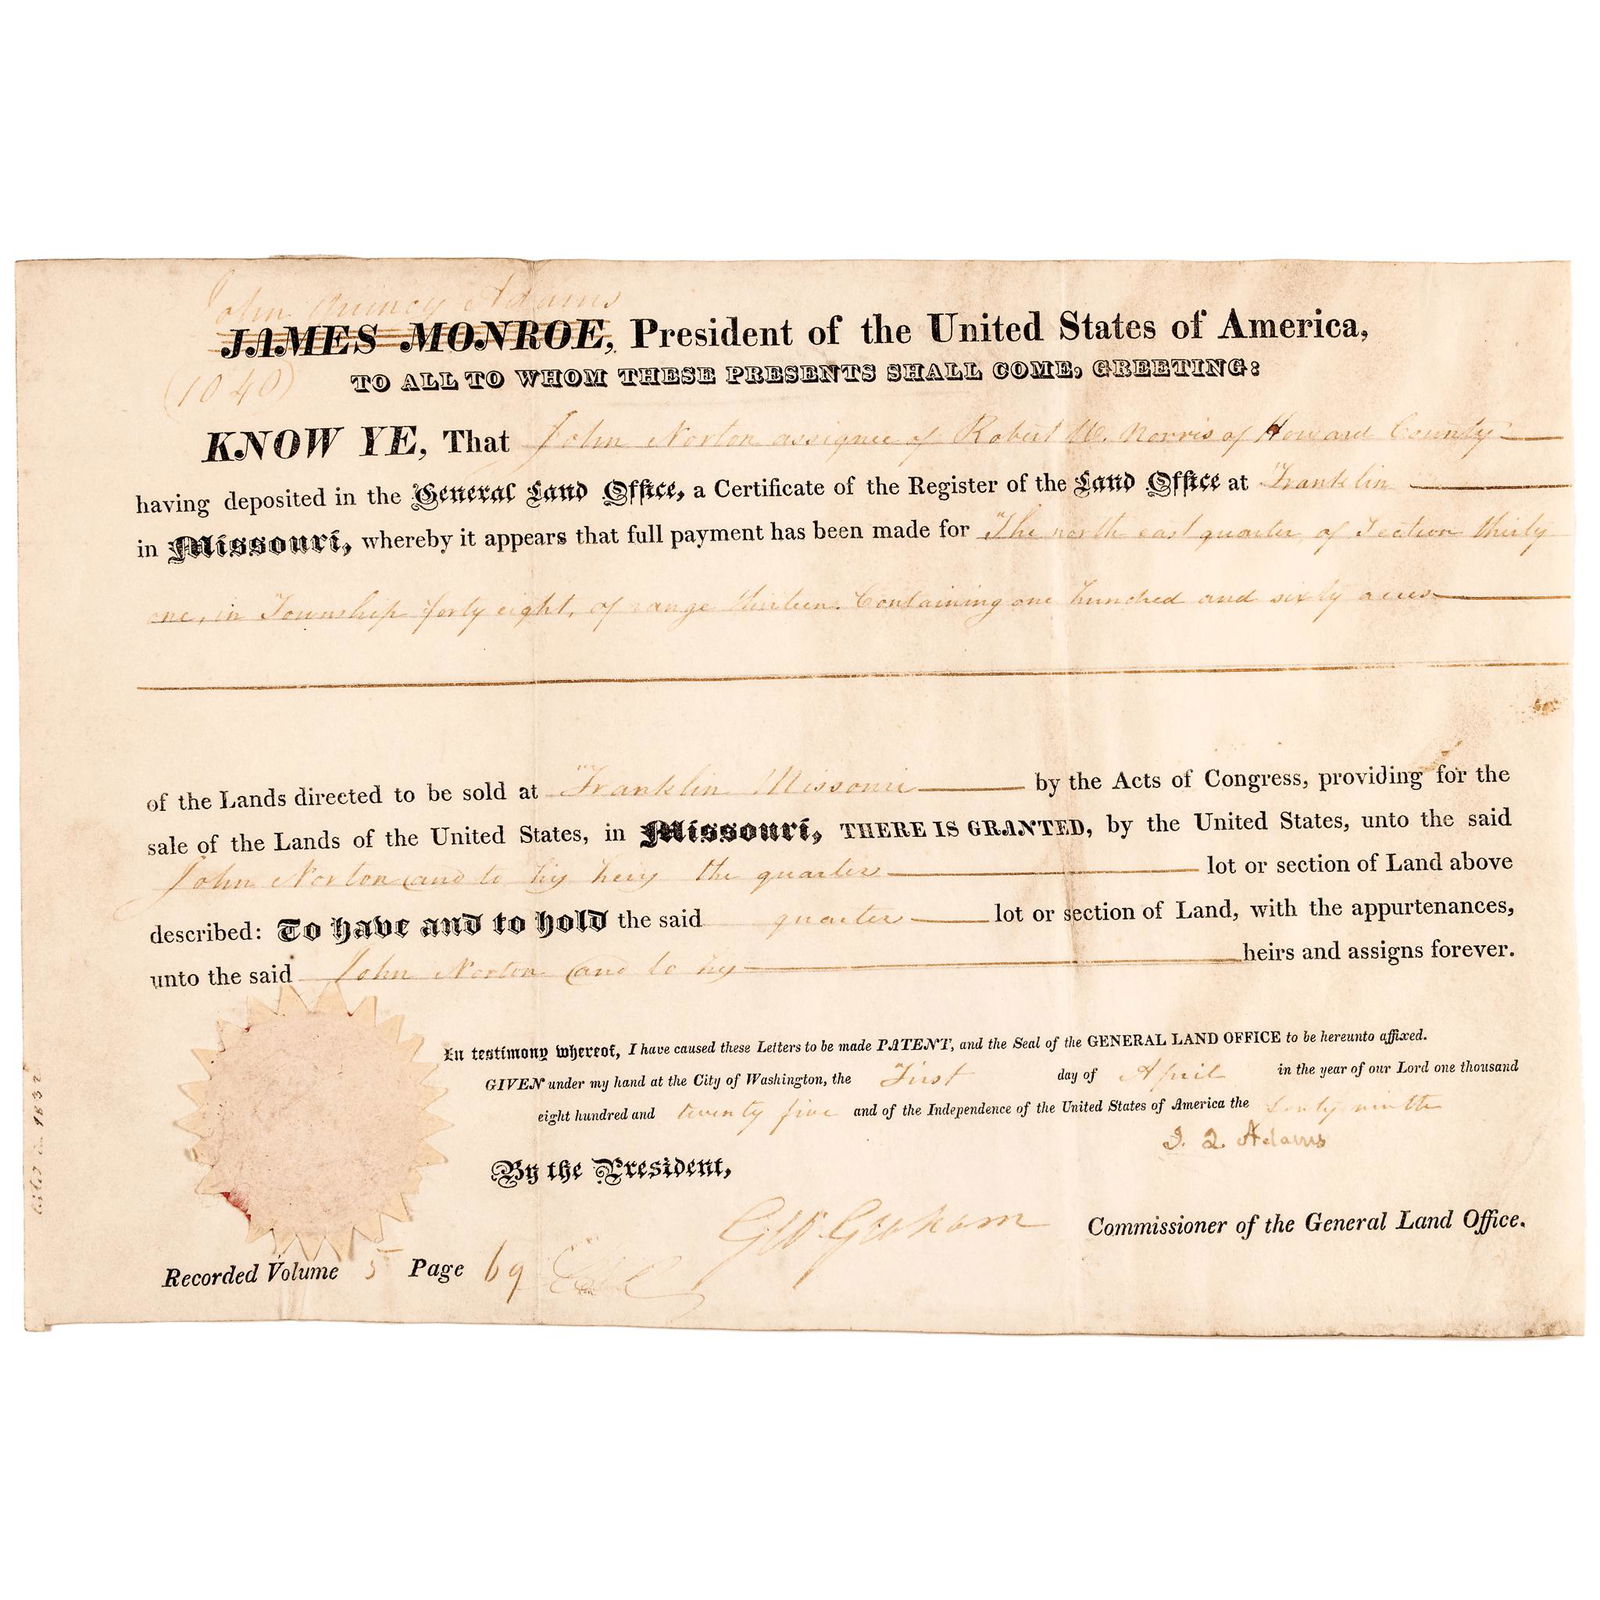 John Quincy Adams
JAMES MONROE, President of the United States of America,
(1040) TO ALL TO WHOM THESE PRESENTS SHALL COME, GREETING:
KNOW YE, That John Norton assignee of Robert W. Norris of Howard County
having deposited in the General Land Office, a Certificate of the Register of the Land Office at Franklin
in Missouri, whereby it appears that full payment has been made for The north east quarter, of Section thirty
one, in Township forty eight, of range thirteen. Containing one hundred and sixty acres
of the Lands directed to be sold at Franklin Missouri by the Acts of Congress, providing for the
sale of the Lands of the United States, in Missouri, THERE IS GRANTED, by the United States, unto the said
John Norton and to his heirs the quarter lot or section of Land above
described: To have and to hold the said quarter lot or section of Land, with the appurtenances,
unto the said John Norton and to his heirs and assigns forever.
In testimony whereof, I have caused these Letters to be made PATENT, and the Seal of the GENERAL LAND OFFICE to be hereunto affixed.
GIVEN under my hand at the City of Washington, the First day of April in the year of our Lord one thousand
eight hundred and twenty five and of the Independence of the United States of America the forty ninth
J. Q. Adams
By the President,
Geo. Graham Commissioner of the General Land Office.
Recorded Volume 5 Page 69